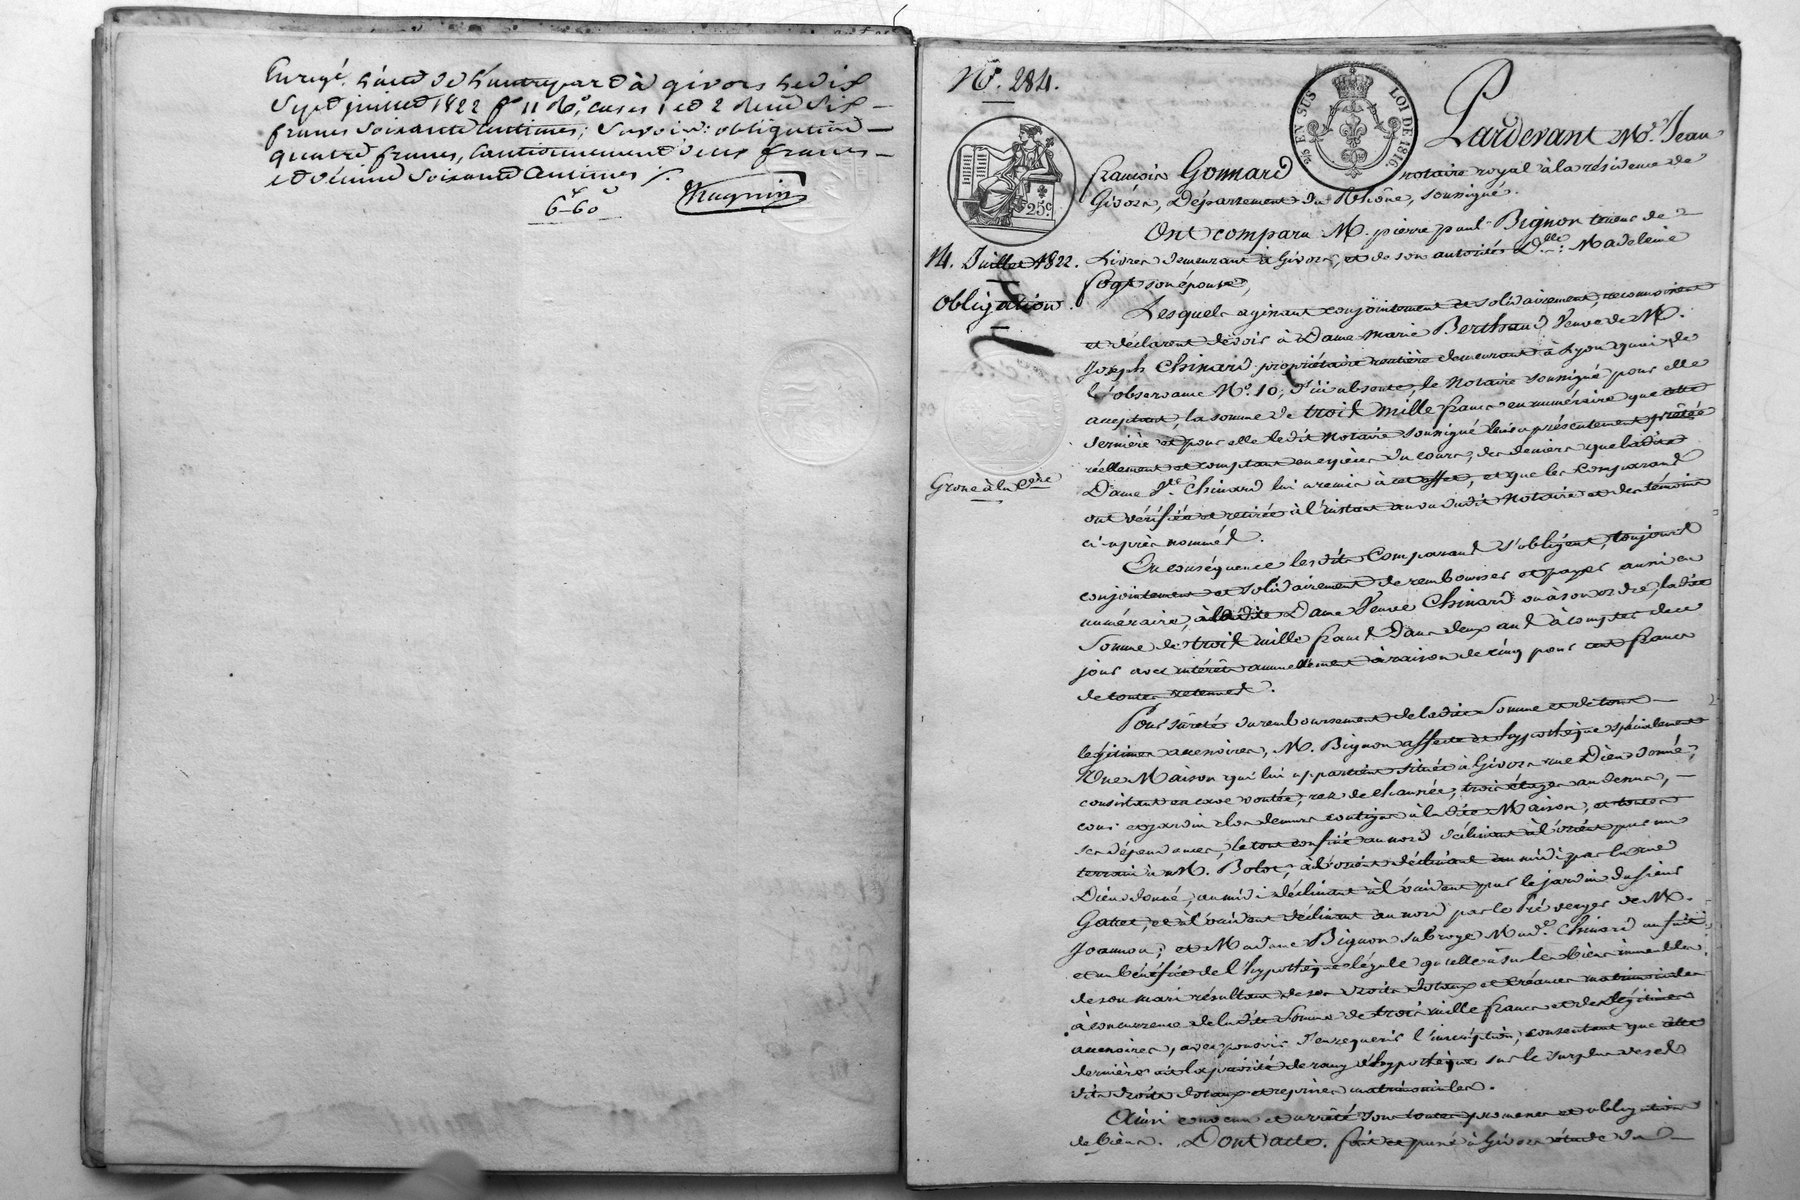 Enregé. l'acte de l'autre part à givors le dix
Sept juillet 1822 fo. 11 Ro. cases 1 et 2 Reçu Six
francs Soixante Centimes; Savoir: obligation
quatre francs, Cautionnement deux francs
et décime Soixante Centimes
6 f 60 c
Magnin
No. 284.
25 c.
14. Juillet 1822.
Obligation.
Grosse à la Cère
25/% EN SUS LOI DE 1816
Pardevant Me. Jean
françois Gonnard notaire royal à la résidence de
Givors, Département du Rhône, soussigné.
Ont comparu M. pierre paul Bignon teneur de
Livres demeurant à Givors, et de son autorité Dlle. Madeleine
fogt son épouse,
Lesquels agissant conjointement et solidairement, reconnaissent
et déclarent devoir à Dame Marie Berthaud Veuve de M.
Joseph Chinard propriétaire rentière demeurant à Lyon quai de
l'observance No. 10, d'ici absente, le Notaire soussigné pour elle
acceptant, la somme de trois mille francs en numéraire que cette
dernière et pour elle ledit Notaire soussigné leur a présentement prêtée
réellement et comptant en espèces du cours, des deniers que ladite
Dame Ve. Chinard lui a remis à cet effet, et que les Comparans
ont vérifiée et retirée à l'instant au vu dudit Notaire et des témoins
ci-après nommés.
En conséquence lesdits Comparans s'obligent, toujours
conjointement et solidairement de rembourser et payer aussi en
numéraire, à ladite Dame Veuve Chinard ou à son ordre, ladite
Somme de trois mille francs Dans deux ans à compter de ce
jour avec intérêts annuellement à raison de cinq pour cent francs
de toutes retenues.
Pour sûreté du remboursement de ladite Somme et de tous
légitimes accessoires, M. Bignon affecte et hypothèque spécialement
Une Maison qui lui appartient située à Givors rue Dieu donné,
consistant en cave voutée, rez de chaussée, trois étages au dessus,
cour et jardin clos de murs contigus à ladite Maison, et toutes
ses dépendances, le tout confiné au nord déclinant à l'orient par un
terrain à M. Bolot, à l'orient déclinant au midi par la rue
Dieu donné, au midi déclinant à l'occident par le jardin du sieur
Gattet, et à l'occident déclinant au nord par le Pré verger de M.
Joannon; et Madame Bignon subroge Made. Chinard
et au bénéfice de l'hypothèque légale qu'elle a sur les biens immeubles
de son mari résultant de ses droits dotaux et créances matrimoniales
à concurrence de ladite Somme de trois mille francs et des légitimes
accessoires, avec pouvoir d'en requérir l'inscription, consentant que cette
dernière ait la priorité de rang d'hypothèque sur le surplus de ses
dits droits dotaux et reprises matrimoniales.
Ainsi convenu et arrêté sous toutes promesses et obligations
de biens. Dont acte. fait et passé à Givors étude du